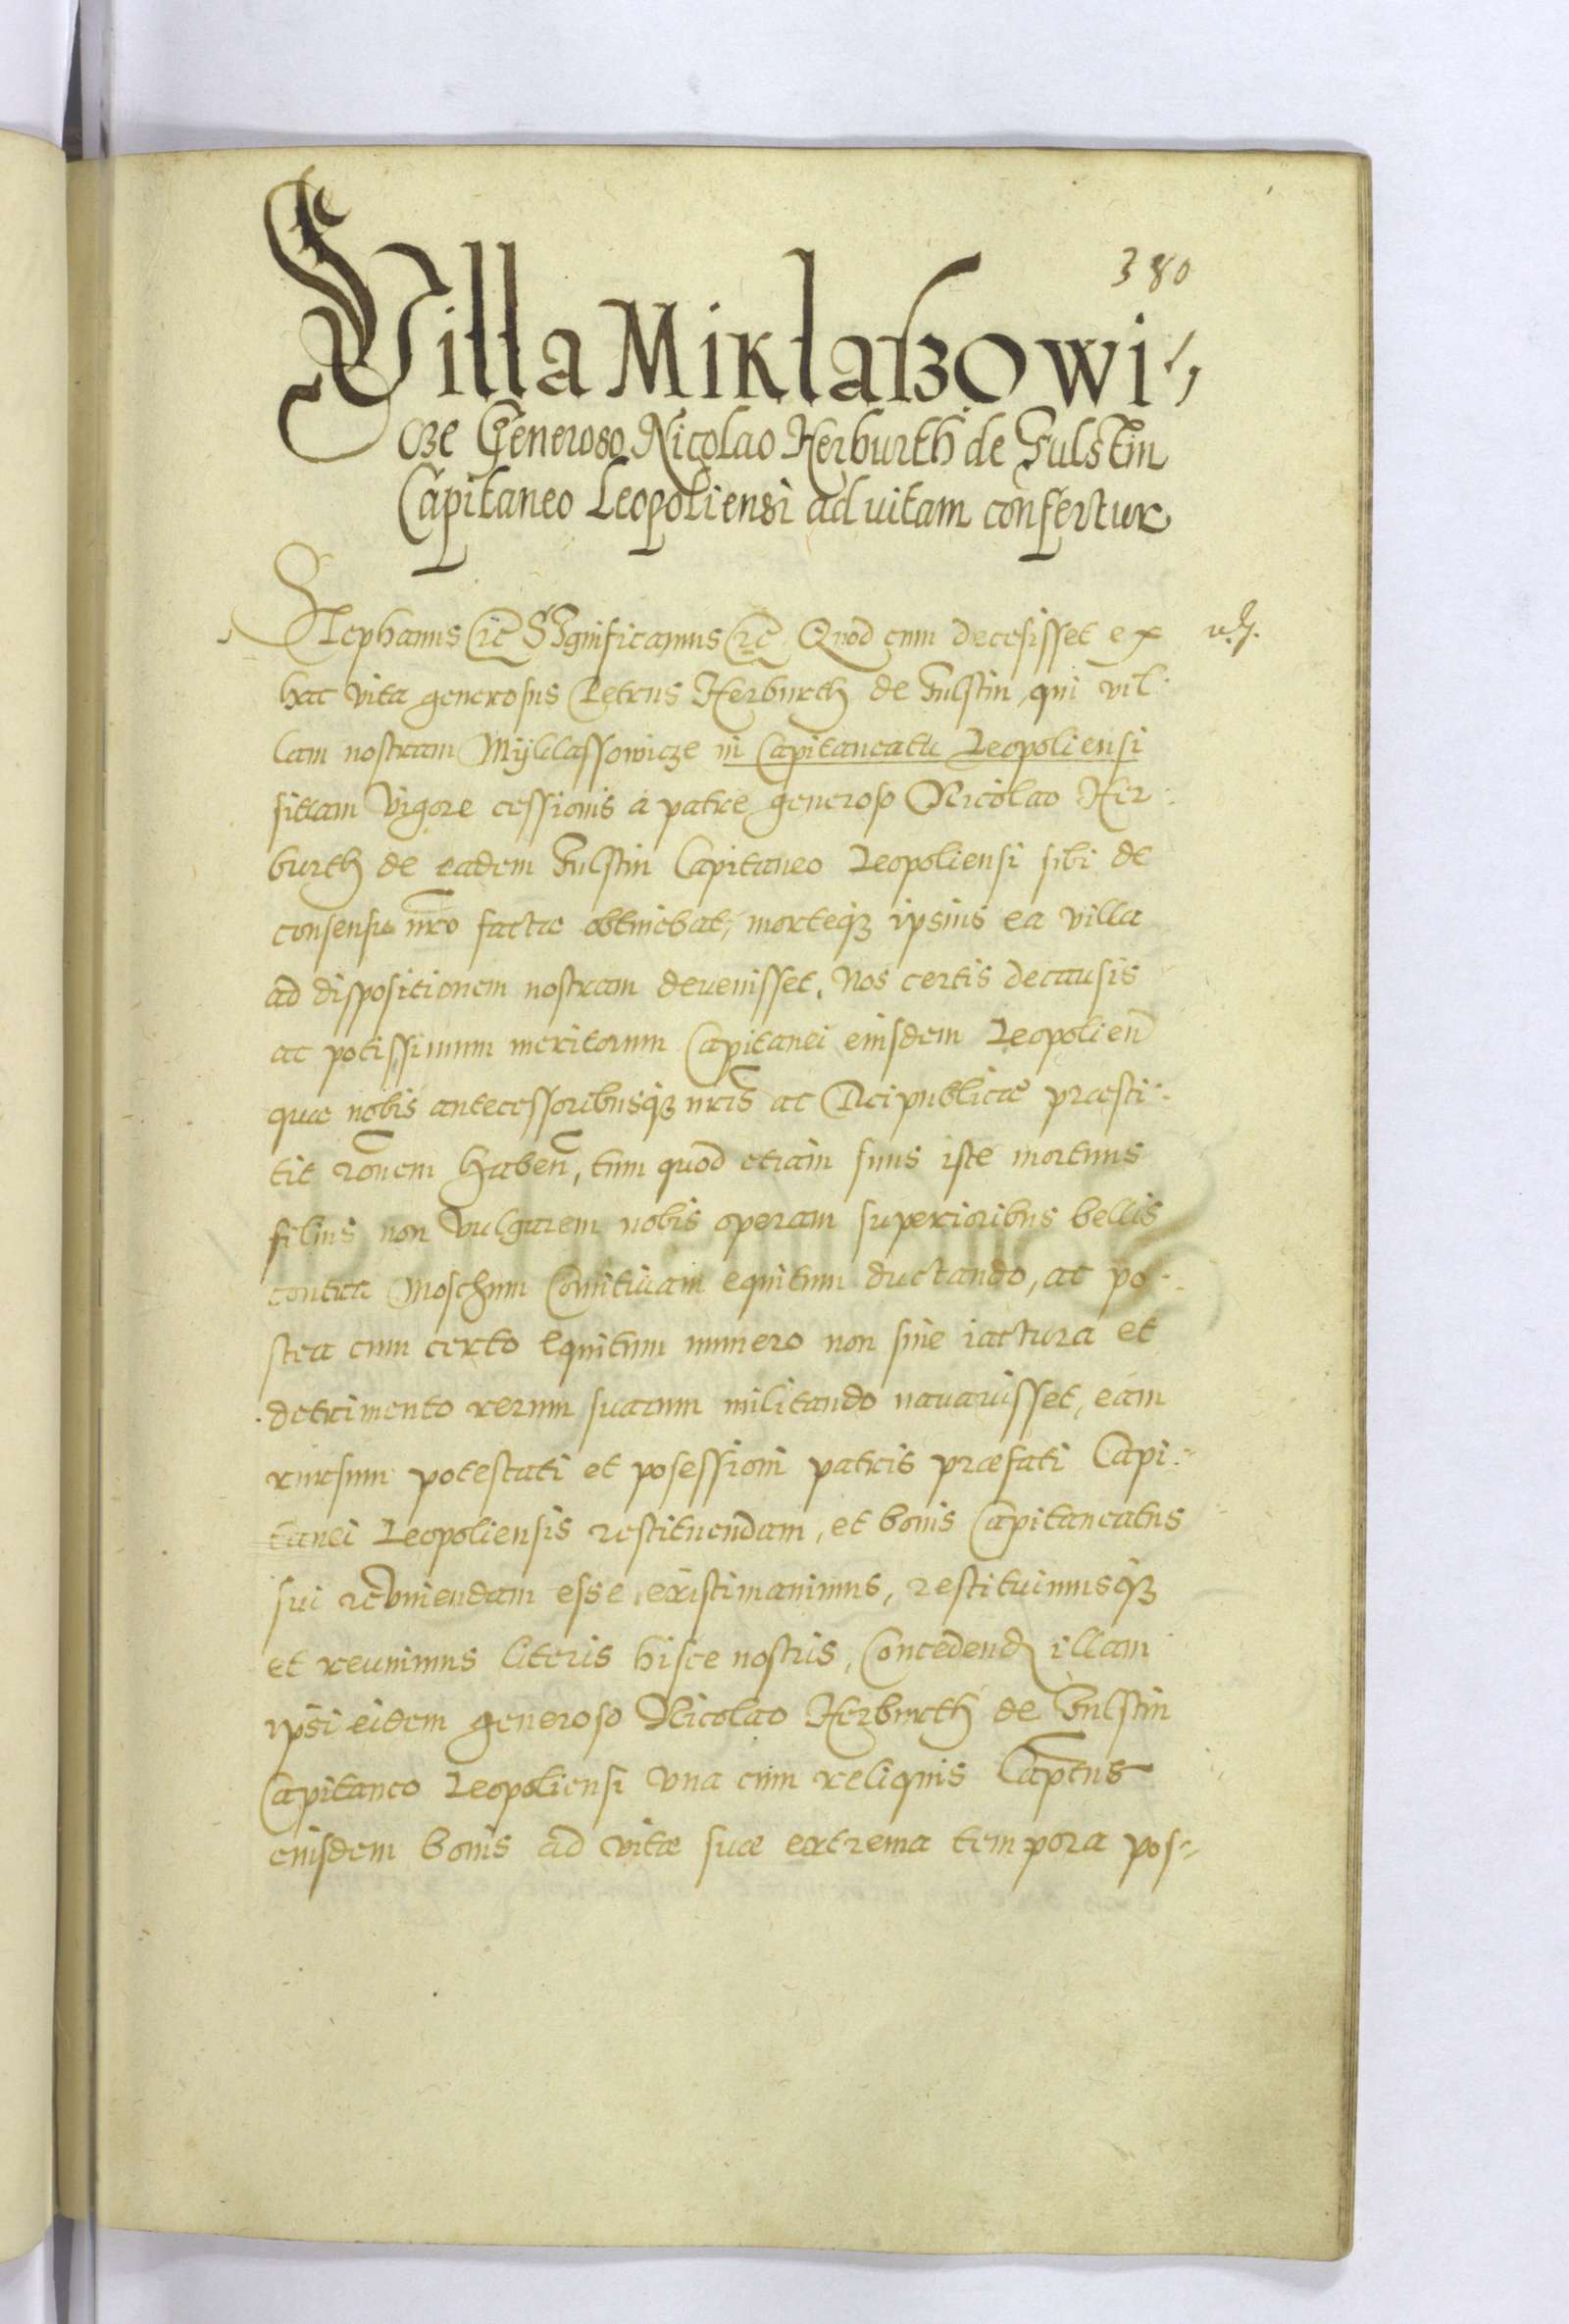 380
Villa Miklaszowi,
cze Generoso Nicolao Herburth de Fulstin
Capitaneo Leopoliensi ad uitam confertur
Stephanus etc SIgnificamus etc Quod cum decesisset ex
hac vita generosus Petrus Herburth de Fulstin, qui vil:
lam nostram Myklassowicze in Capitaneatu Leopoliensi
sitam vigore cessionis a patre generoso Nicolao Her:
burth de eadem Fulstin Capitaneo Leopoliensi sibi de
consensu nro factae obtinebat, morteqз ipsius ea villa
ad dispositionem nostram devenisset. Nos certis decausis
ac potissimum meritorum Capitanei eiusdem Leopolien
quae nobis antecessoribusqз nris ac Reipublicae praesti:
tit ronem haben, tum quod etiam suus iste mortuus
filius non vulgarem nobis operam superioribus bellis
contra Moschum Comitiuam equitum ductando, ac po:
stea cum certo equitum numero non sine iactura et
detrimento rerum suarum militando nauauisset, eam
rursum potestati et posessioni patris praefati Capi:
tanei Leopoliensis restituendam, et bonis Capitaneatus
sui reuniendam esse existimauimus, restituimusqз
et reunimus literis hisce nostris, Concedend illam
ipsi eidem generoso Nicolao Herburth de Fulstin
Capitaneo Leopoliensi vna cum reliquis Captus
eiusdem bonis ad vitae suae extrema tempora pos: